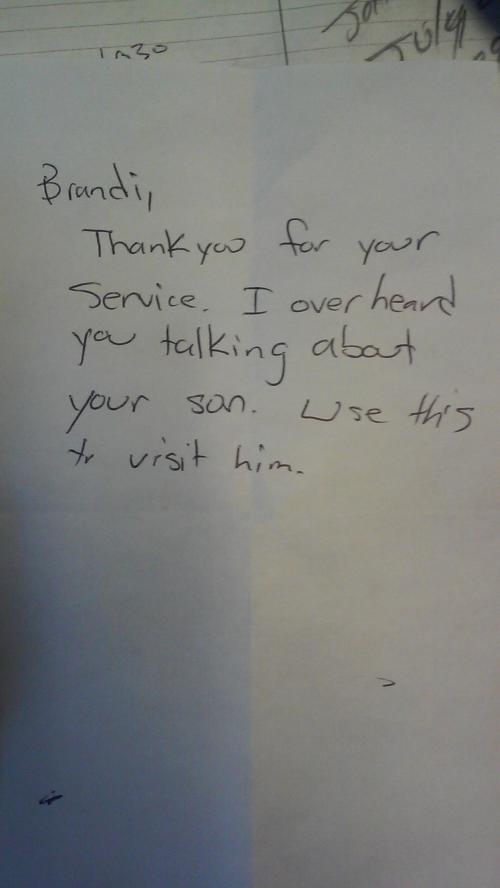 1m30
July
Brandi,
Thank you for your
Service. I overheard
you talking about
your son. Use this
to visit him.